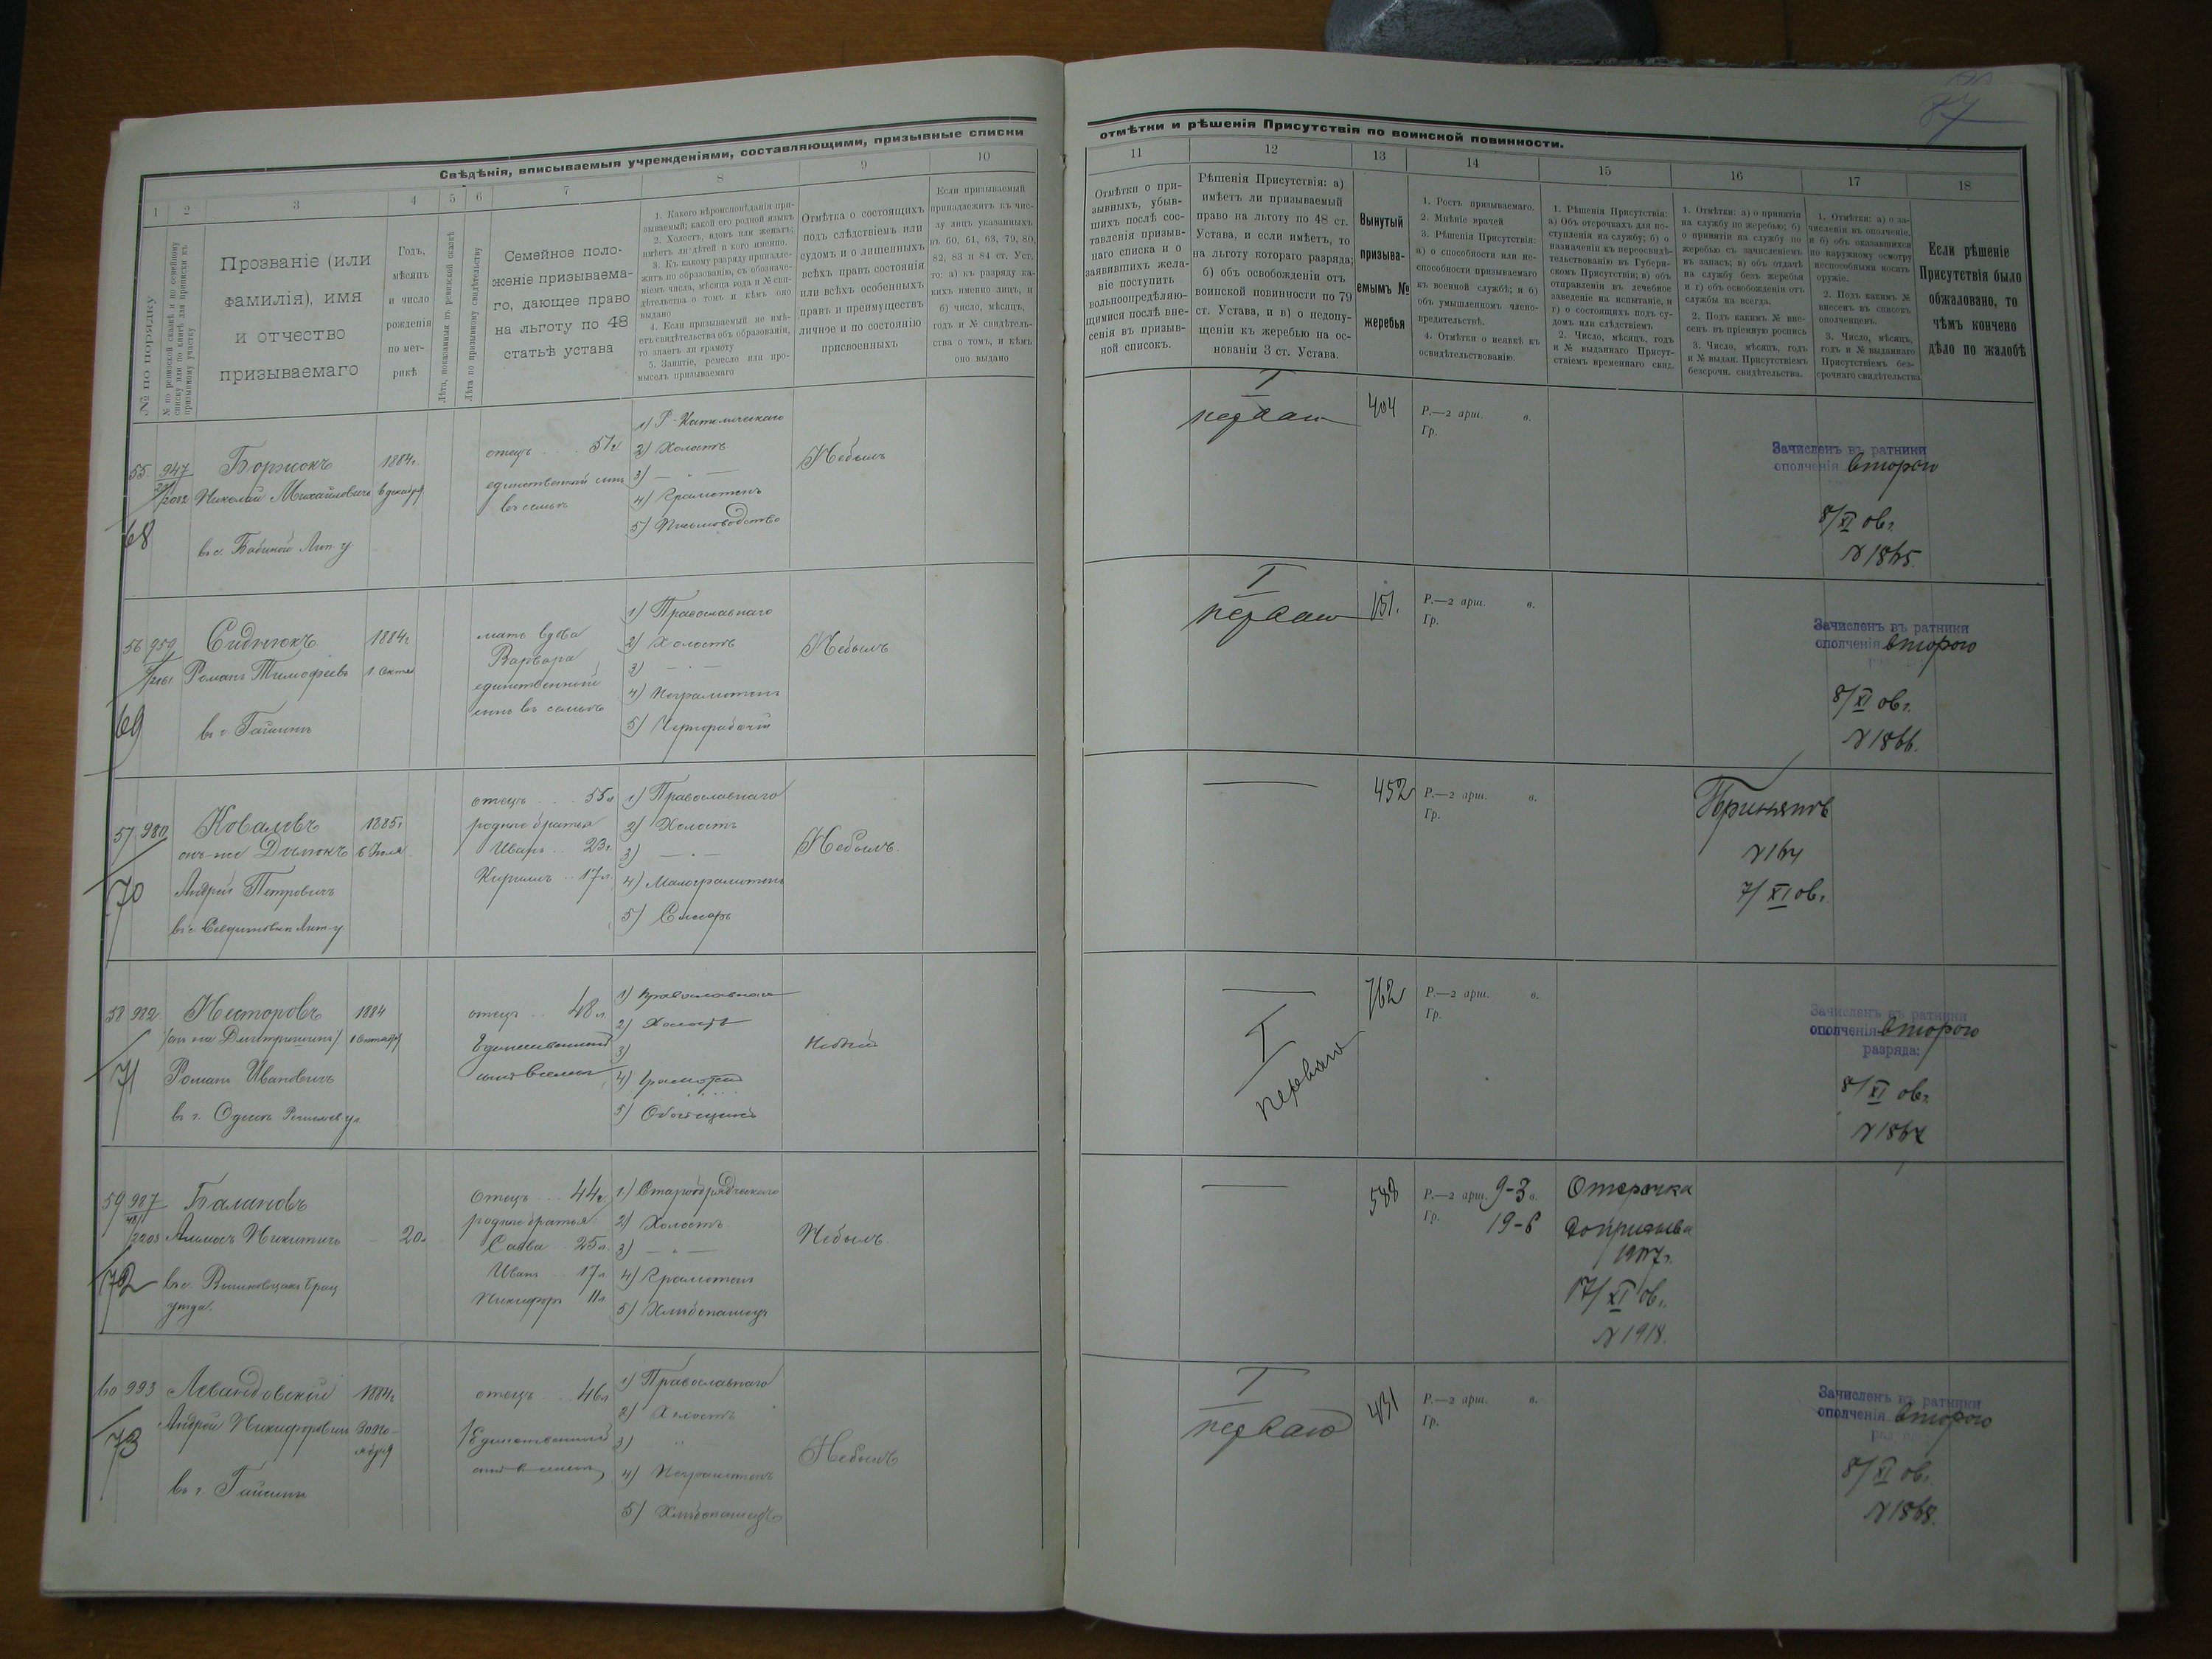 Свѣдѣнія, вписываемыя учрежденіями, составляющими, призывные списки
1 2 3 4 5 6 7 8 9 10
№ по порядку
№ по ревизской сказкѣ и по семейному
списку или по книгѣ для приписки къ
призывному участку
Прозваніе (или
фамилія), имя
и отчество
призываемаго
Годъ,
мѣсяцъ
и число
рожденія
по мет-
рикѣ
Лѣта, показанныя въ ревизской сказкѣ
Лѣта по призывному свидѣтельству
Семейное поло-
женіе призываема-
го, дающее право
на льготу по 48
статьѣ устава
1. Какого вѣроисповѣданія при-
зываемый; какой его родной языкъ
2. Холостъ, вдовъ или женатъ;
имѣетъ ли дѣтей и кого именно.
3. Къ какому разряду принадле-
житъ по образованію, съ обозначе-
ніемъ числа, мѣсяца, года и № сви-
дѣтельства о томъ и кѣмъ оно
выдано
4. Если призываемый не имѣ-
етъ свидѣтельства объ образованіи,
то знаетъ ли грамоту
5. Занятіе, ремесло или про-
мыселъ призываемаго
Отмѣтка о состоящихъ
подъ слѣдствіемъ или
судомъ и о лишенныхъ
всѣхъ правъ состоянія
или всѣхъ особенныхъ
правъ и преимуществъ
личное и по состоянію
присвоенныхъ
Если призываемый
принадлежитъ къ чис-
лу лицъ указанныхъ
въ 60, 61, 63, 79, 80,
82, 83 и 84 ст. Уст.
то: а) къ разряду ка-
кихъ именно лицъ, и
б) число, мѣсяцъ,
годъ и № свидѣтель-
ства о томъ, и кѣмъ
оно выдано
55. 947
2082
68
Борзюкъ
Николай Михайловичъ
въ с. Бабиной Лип. у
1884г.
6 декабря
отецъ 51г
единственный сынъ
въ семьѣ
1) Р-Католическаго
2) Холостъ
3) —
4) Грамотенъ
5) Письмоводство
Небылъ
56 959
2161
69
Сиднюкъ
Романъ Тимофеевъ
въ г. Гайсинѣ
1884г
1 Октяб
мать вдова
Варвара
единственный
сынъ въ семьѣ
1) Православнаго
2) Холостъ
3) — " —
4) Неграмотенъ
5) Чернорабочій
Небылъ
57 980
70
Коваловъ
онъ-же
Андрей Петровичъ
1885г
6 Іюля
отецъ 55л
родные братья
Иванъ 23г.
Кириллъ 17л.
1) Православнаго
2) Холостъ
3) — " —
4) Малограмотенъ
5) Слесарь
Небылъ.
58 982
71
Несторовъ
Романъ Ивановичъ
въ г. Одессѣ
1884
1 Октября
отецъ 48л.
Единственный
сынъ въ семьѣ
1) Православнаго
2) Холостъ
3)
4) Грамотенъ
5)
Небылъ
59 987
2203
72
Балановъ
Никитичъ
уезда.
20л
Отецъ 44г.
родные братья:
Савва 25л.
Иванъ 17л
Никифоръ 11л.
1) Старообрядческаго
2) Холостъ
3) — " —
4) Грамотенъ
5) Хлѣбопашецъ
Небылъ.
60 993
73
Левандовскій
Андрей Никифоровичъ
въ г. Гайсинѣ
1884г
30 Но-
ября
отецъ 46л
Единственный
сынъ въ семьѣ
1) Православнаго
2) Холостъ
3) "
4) Неграмотенъ
5) Хлѣбопашецъ
Небылъ
87
отмѣтки и рѣшенія Присутствія по воинской повинности.
11 12 13 14 15 16 17 18
Отмѣтки о при-
зывныхъ, убыв-
шихъ послѣ сос-
тавленія призыв-
наго списка и о
заявившихъ жела-
ніе поступить
вольноопредѣляю-
щимися послѣ вне-
сенія въ призыв-
ной списокъ.
Рѣшенія Присутствія: а)
имѣетъ ли призываемый
право на льготу по 48 ст.
Устава, и если имѣетъ, то
на льготу котораго разряда;
б) объ освобожденіи отъ
воинской повинности по 79
ст. Устава, и в) о недопу-
щеніи къ жеребью на ос-
нованіи 3 ст. Устава.
Вынутый
призыва-
емымъ №
жеребья
1. Ростъ призываемаго.
2. Мнѣніе врачей
3. Рѣшенія Присутствія:
а) о способности или не-
способности призываемаго
къ военной службѣ; и б)
объ умышленномъ члено-
вредительствѣ.
4. Отмѣтки о неявкѣ къ
освидѣтельствованію.
1. Рѣшенія Присутствія:
а) Объ отсрочкахъ для по-
ступленія на службу; б) о
назначеніи къ переосвидѣ-
тельствованію въ Губерн-
скомъ Присутствіи; в) объ
отправленіи въ лечебное
заведеніе на испытаніе, и
г) о состоящихъ подъ су-
домъ или слѣдствіемъ
2. Число, мѣсяцъ, годъ
и № выданнаго Присут-
ствіемъ временнаго свид.
1. Отмѣтки: а) о принятіи
на службу по жеребью; б)
о принятіи на службу по
жеребью съ зачисленіемъ
въ запасъ; в) объ отдачѣ
на службу безъ жеребья
и г) объ освобожденіи отъ
службы на всегда.
2. Подъ какимъ № вне-
сенъ въ пріемную роспись
3. Число, мѣсяцъ, годъ
и № выдан. Присутствіемъ
безсрочн. свидѣтельства.
1. Отмѣтки: а) о за-
численіи въ ополченіе,
и б) объ оказавшихся
по наружному осмотру
неспособными носить
оружіе.
2. Подъ какимъ №
внесенъ въ списокъ
ополченцевъ.
3. Число, мѣсяцъ,
годъ и № выданнаго
Присутствіемъ без-
срочнаго свидѣтельства
Если рѣшеніе
Присутствія было
обжаловано, то
чѣмъ кончено
дѣло по жалобѣ
I
перваго
404
Р.—2 арш. в.
Гр.
Зачисленъ въ ратники
ополченія второго
8/XI 06г.
№ 1865.
I
перваго
151.
Р.—2 арш. в.
Гр.
Зачисленъ въ ратники
ополченія второго
8/XI 06г.
№ 1866.
—
452
Р.—2 арш. в.
Гр.
Принятъ
№ 164
7/XI 06г.
—
I
перваго
762
Р.—2 арш. в.
Гр.
Зачисленъ въ ратники
ополченія второго
разряда;
8/XI 06г.
№ 1867
—
588
Р.—2 арш. 9-3 в.
Гр. 19-6
Отсрочка
до призыва
1907г.
17/XI 06г.
№ 1918.
I
перваго
431
Р.—2 арш. в.
Гр.
Зачисленъ въ ратники
ополченія второго
8/XI 06г.
№ 1868.